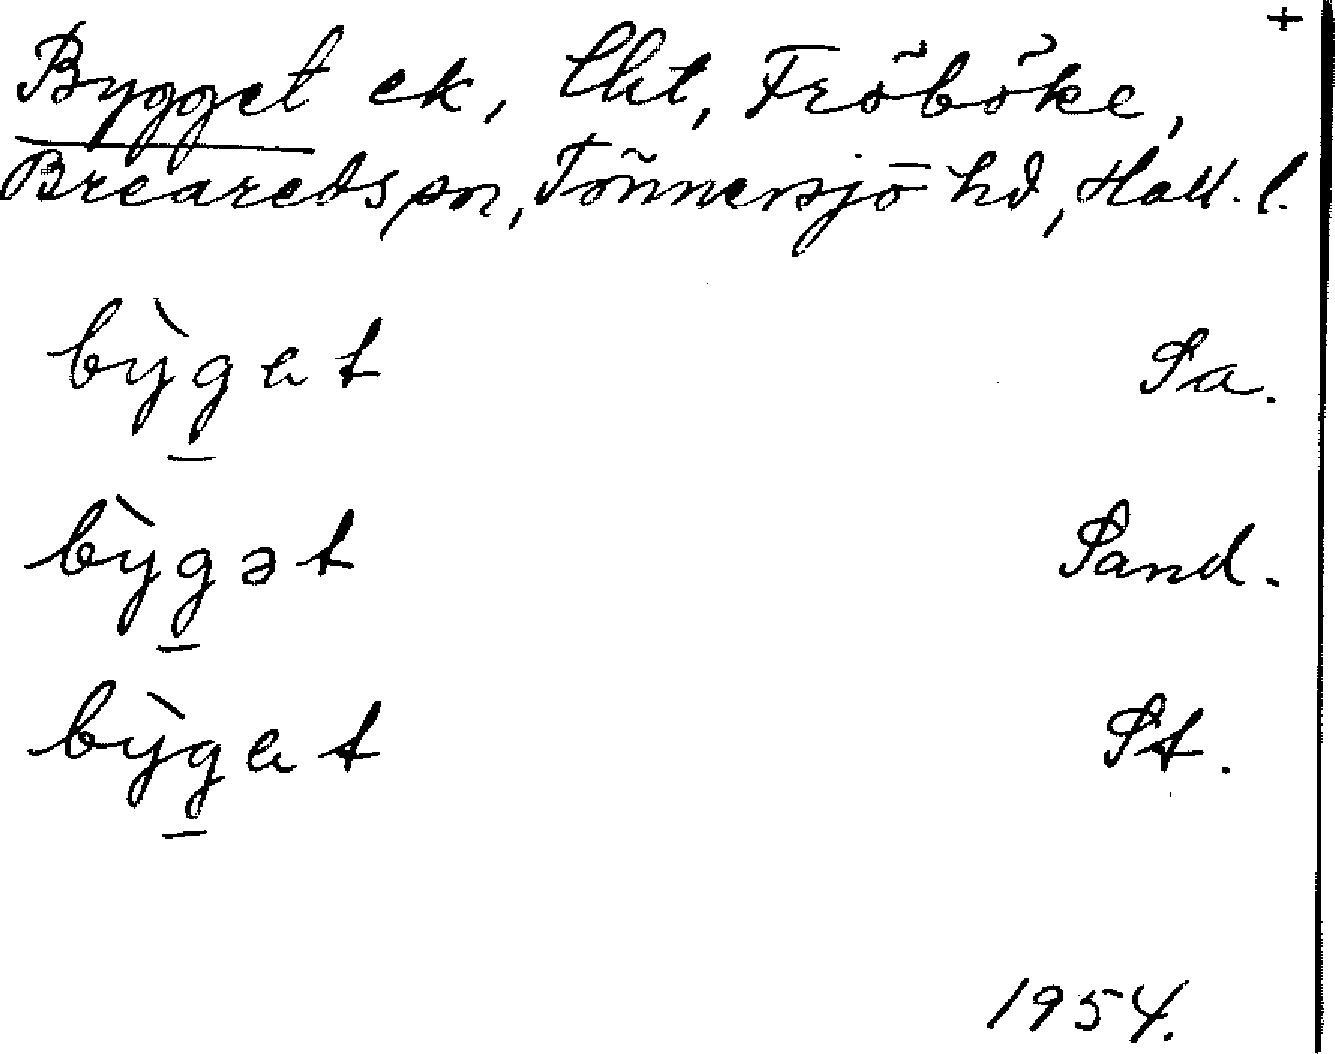 +
Bygget ek, lht, Fröböke,
Breareds sn, Tönnersjö hd, Hall. l.
bỳget Sa.
bỳgət Sand.
bỳget St.
1954.